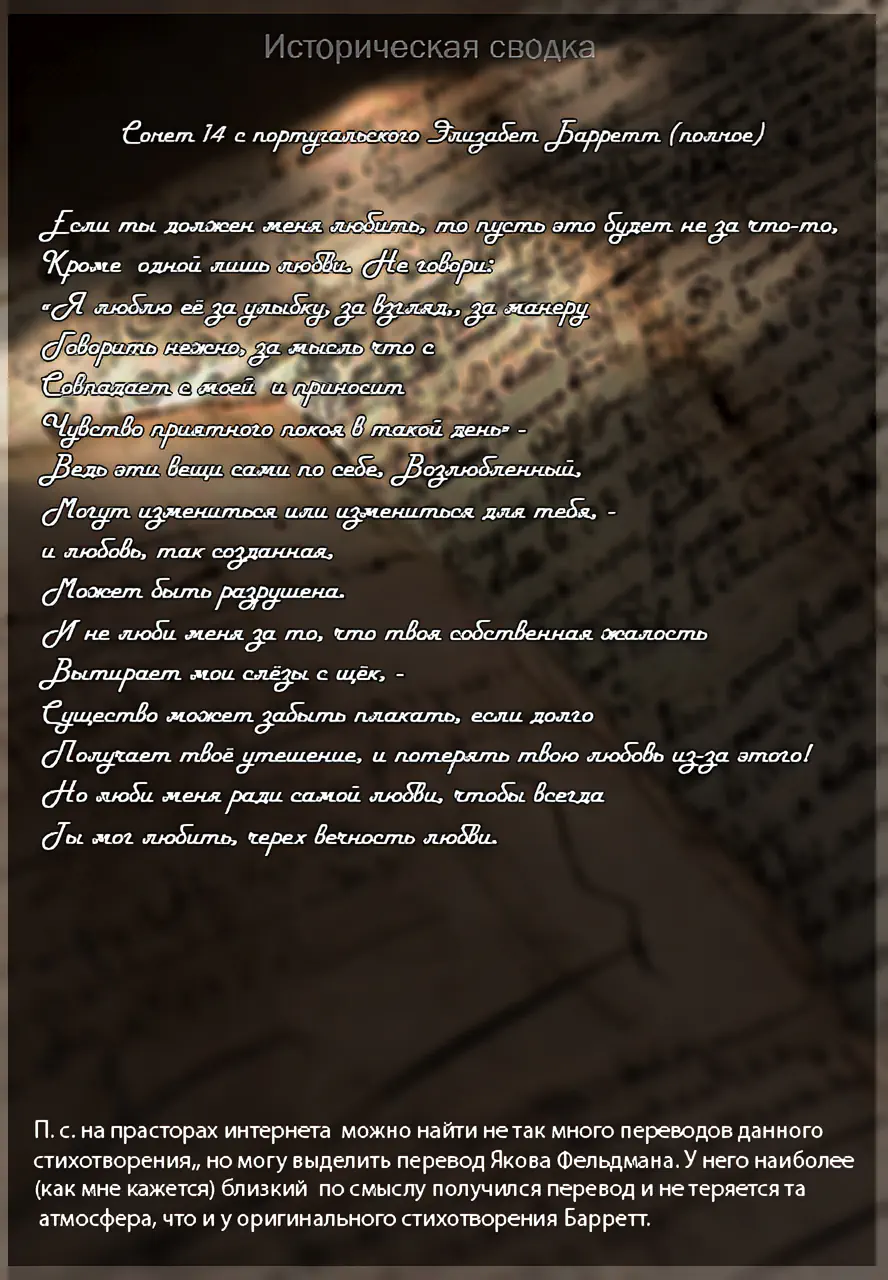 Историческая сводка
Сонет 14 с португальского Элизабет Барретт (полное)
Если ты должен меня любить, то пусть это будет не за что-то,
Кроме одной лишь любви. Не говори:
«Я люблю её за улыбку, за взгляд,, за манеру
Говорить нежно, за мысль что с
Совпадает с моей и приносит
Чувство приятного покоя в такой день» -
Ведь эти вещи сами по себе, Возлюбленный,
Могут измениться или измениться для тебя, -
и любовь, так созданная,
Может быть разрушена.
И не люби меня за то, что твоя собственная жалость
Вытирает мои слёзы с щёк, -
Существо может забыть плакать, если долго
Получает твоё утешение, и потерять твою любовь из-за этого!
Но люби меня ради самой любви, чтобы всегда
Ты мог любить, черех вечность любви.
П. с. на прасторах интернета можно найти не так много переводов данного
стихотворения,, но могу выделить перевод Якова Фельдмана. У него наиболее
(как мне кажется) близкий по смыслу получился перевод и не теряется та
атмосфера, что и у оригинального стихотворения Барретт.